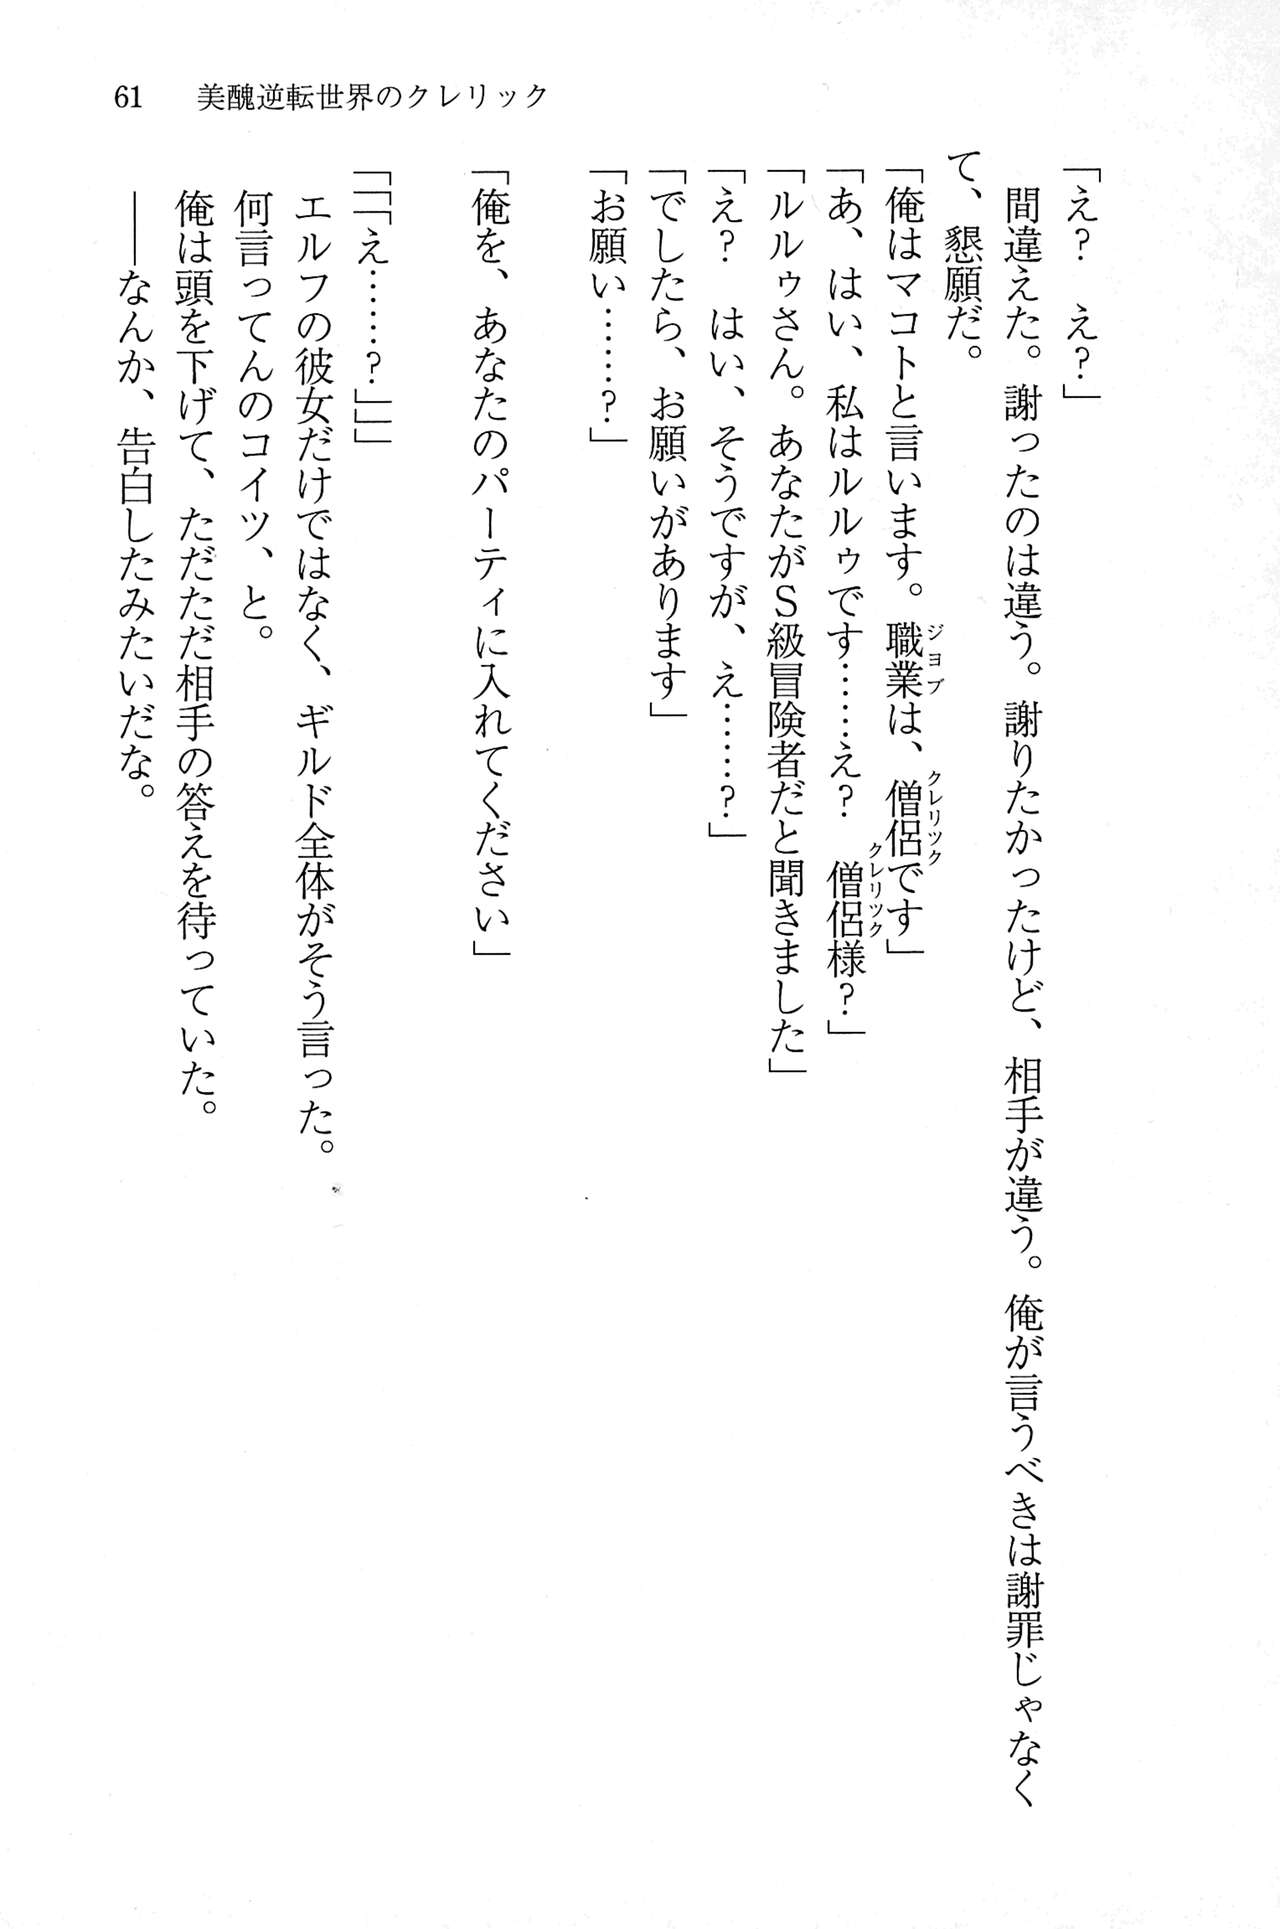 61　美醜逆転世界のクレリック
「え？　え？」
間違えた。謝ったのは違う。謝りたかったけど、相手が違う。俺が言うべきは謝罪じゃなく
て、懇願だ。
「俺はマコトと言います。職業は、僧侶です」
ジョブ
クレリック
「あ、はい、私はルルゥです……え？　僧侶様？」
クレリック
「ルルゥさん。あなたがＳ級冒険者だと聞きました」
「え？　はい、そうですが、え……？」
「でしたら、お願いがあります」
「お願い……？」
「俺を、あなたのパーティに入れてください」
「「「え……？」」」
エルフの彼女だけではなく、ギルド全体がそう言った。
何言ってんのコイツ、と。
俺は頭を下げて、ただただ相手の答えを待っていた。
――なんか、告白したみたいだな。